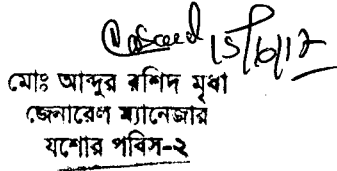 15/10/12
মোঃ আব্দুর রশিদ মৃধা
জেনারেল ম্যানেজার
যশোর পবিস-২